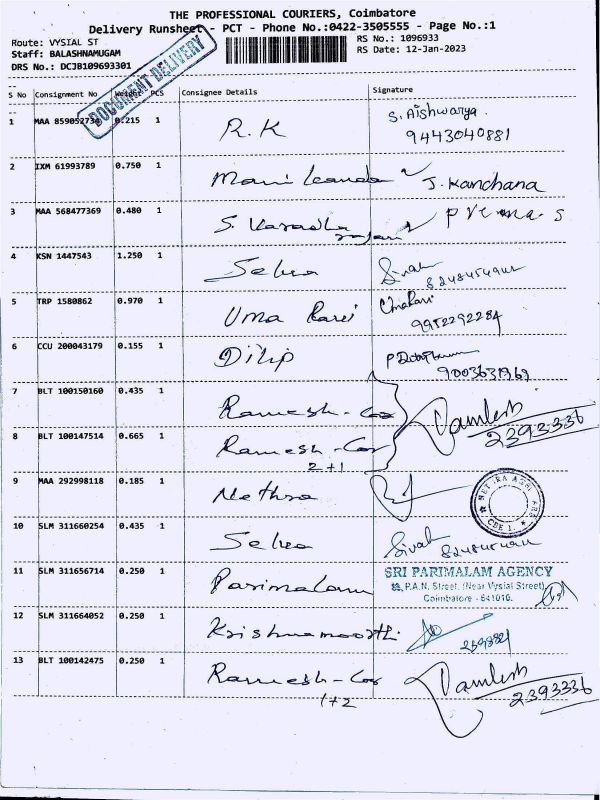 THE PROFESSIONAL COURIERS, Coimbatore
Delivery Runsheet - PCT - Phone No.:0422-3505555 - Page No.:1
Route: VYSIAL ST
RS No.: 1096933
Staff: BALASHNAMUGAM
RS Date: 12-Jan-2023
DRS No.: DCJB109693301
DOCUMENT DELIVERY
S No Consignment No Weight PCS Consignee Details Signature
1 MAA 859052734 0.215 1 R.K S. Aishwarya
9443040881
2 IXM 61993789 0.750 1 Mani J. Kanchana
3 MAA 568477369 0.480 1 S. Varadha
4 KSN 1447543 1.250 1 Selva
5 TRP 1580862 0.970 1 Uma Rani
9952292284
6 CCU 200043179 0.155 1 Dilip
9003631969
7 BLT 100150160 0.435 1 Ramesh-Cos Damlesh
2393336
8 BLT 100147514 0.665 1 Ramesh-Cos
2+1
9 MAA 292998118 0.185 1 Nethra
CBE 1.
10 SLM 311660254 0.435 1 Selva
11 SLM 311656714 0.250 1 Parimalam SRI PARIMALAM AGENCY
P.A.N. Street, (Near Vysial Street)
Coimbatore - 641010.
12 SLM 311664052 0.250 1 Krishnamoorthi
13 BLT 100142475 0.250 1 Ramesh-Cos Damlesh
1+2 2393336